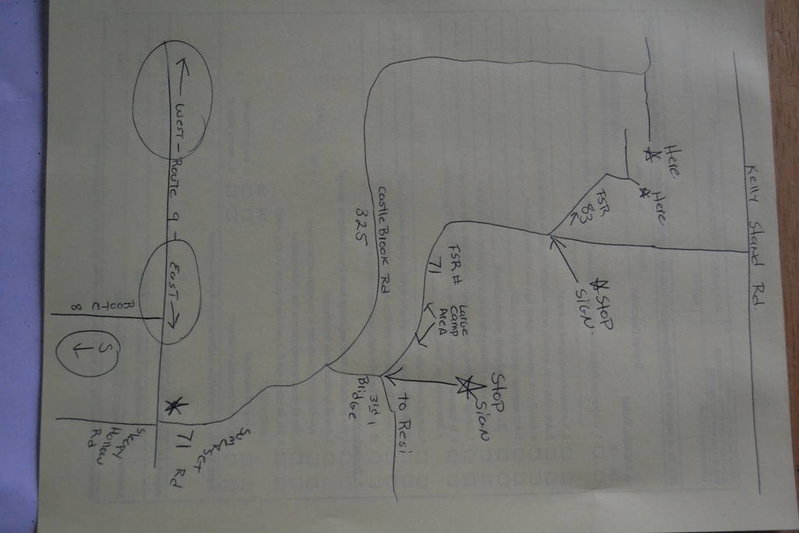 Kelly Stand Rd.
Here
Here
FSR
83
STOP
SIGN.
Castle Brook Rd
325
FSR #
71
Large
Camp
AreA
STOP
SIGN
to Resi
3rd
Bridge
West - Route 9 - EAST
Route
8
S
71 Rd
Hollow
Rd